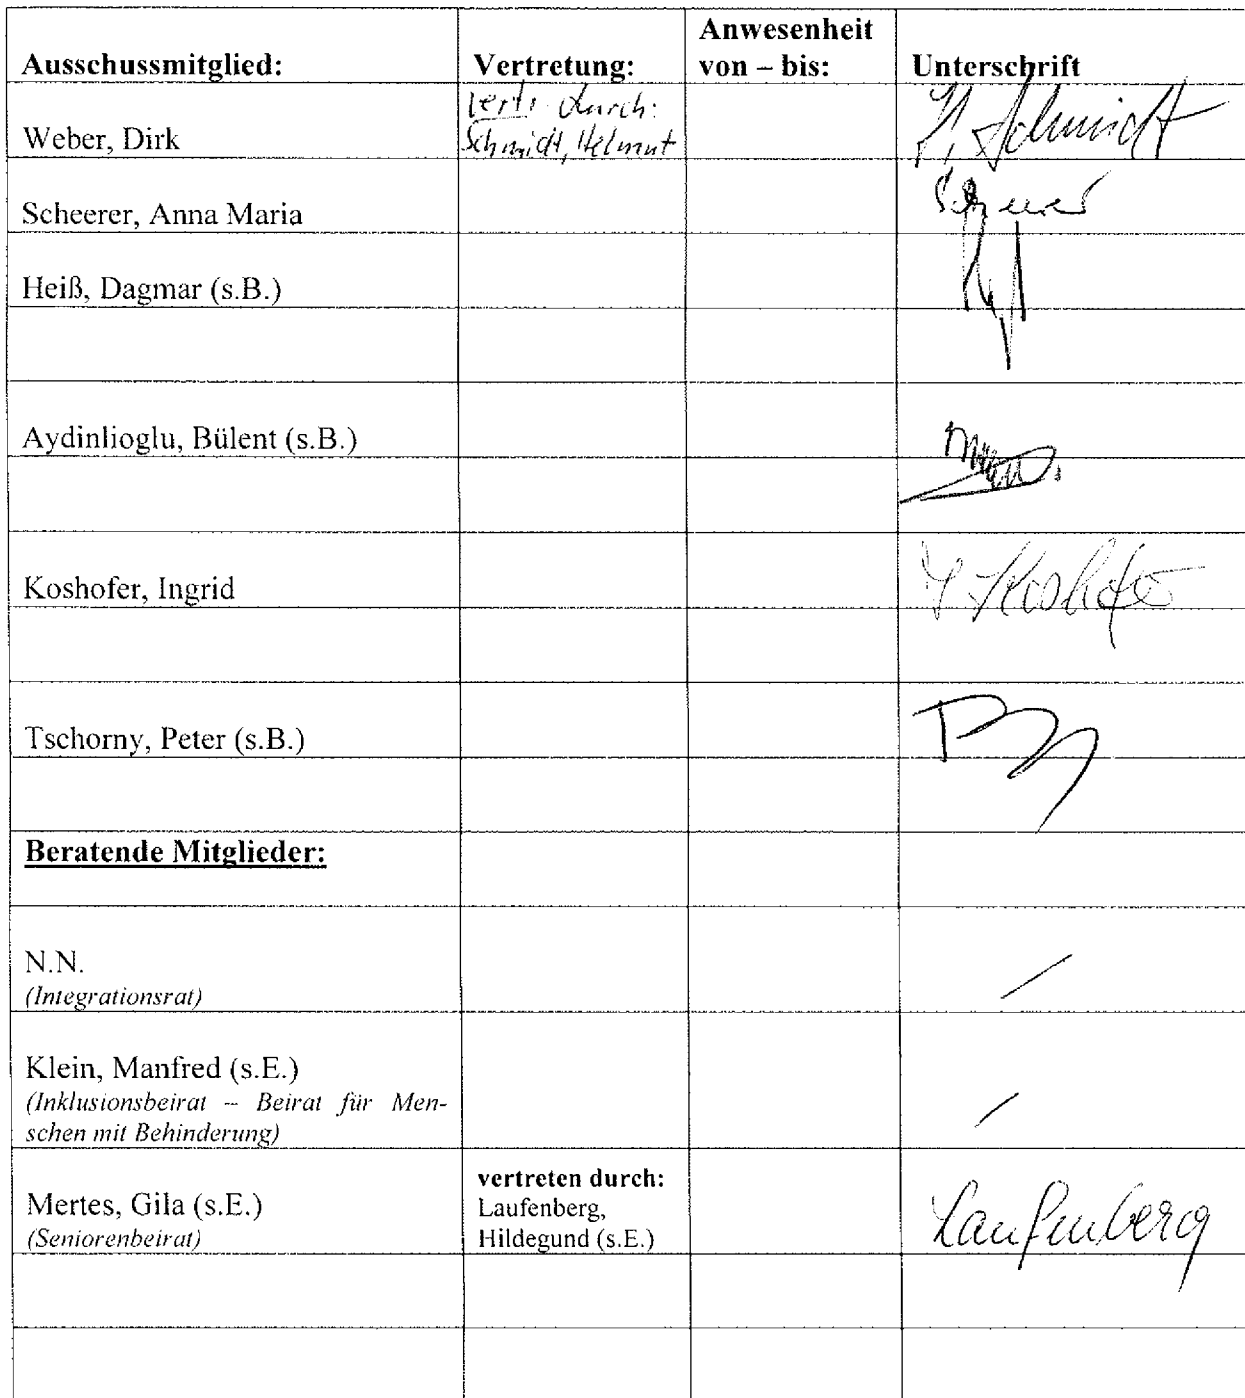 Ausschussmitglied: Vertretung: Anwesenheit von – bis: Unterschrift
Weber, Dirk
vertr. durch:
Schmidt, Helmut
H. Schmidt
Scheerer, Anna Maria
Heiß, Dagmar (s.B.)
Aydinlioglu, Bülent (s.B.)
Koshofer, Ingrid
I. Koshofer
Tschorny, Peter (s.B.)
Beratende Mitglieder:
N.N.
(Integrationsrat)
Klein, Manfred (s.E.)
(Inklusionsbeirat – Beirat für Men-
schen mit Behinderung)
Mertes, Gila (s.E.)
(Seniorenbeirat)
vertreten durch:
Laufenberg,
Hildegund (s.E.)
Laufenberg